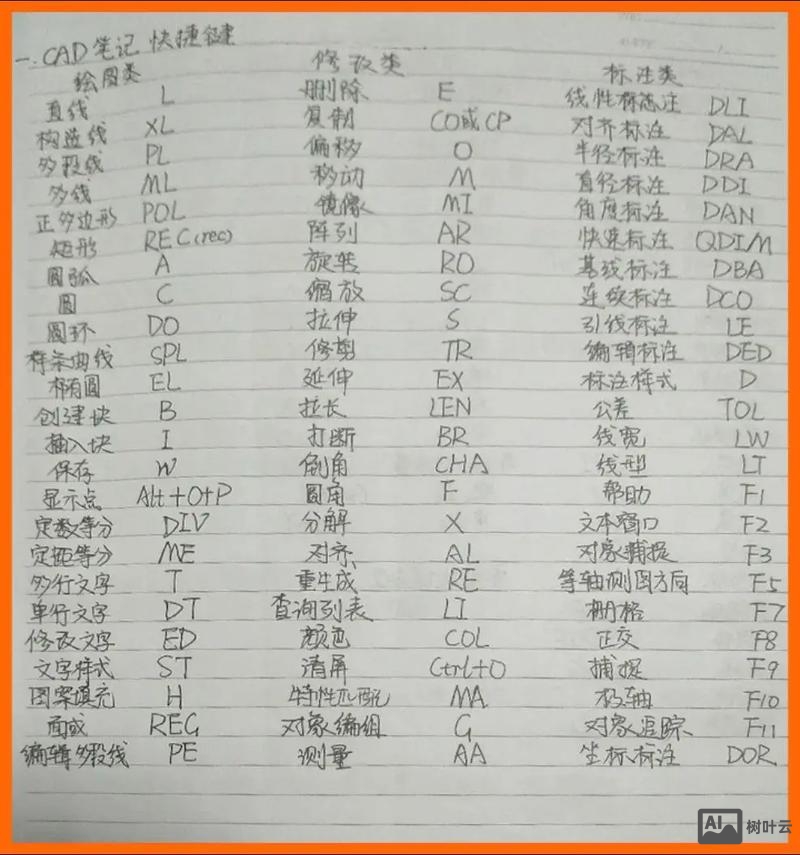 一.CAD笔记 快捷键
绘图类 修改类 标注类
直线 L 删除 E 线性标注 DLI
构造线 XL 复制 CO或CP 对齐标注 DAL
多段线 PL 偏移 O 半径标注 DRA
多线 ML 移动 M 直径标注 DDI
正多边形 POL 镜像 MI 角度标注 DAN
矩形 REC(rec) 阵列 AR 快速标注 QDIM
圆弧 A 旋转 RO 基线标注 DBA
圆 C 缩放 SC 连续标注 DCO
圆环 DO 拉伸 S 引线标注 LE
样条曲线 SPL 修剪 TR 编辑标注 DED
椭圆 EL 延伸 EX 标注样式 D
创建块 B 拉长 LEN 公差 TOL
插入块 I 打断 BR 线宽 LW
保存 W 倒角 CHA 线型 LT
显示点 Alt+O+P 圆角 F 帮助 F1
定数等分 DIV 分解 X 文本窗口 F2
定距等分 ME 对齐 AL 对象捕捉 F3
多行文字 T 重生成 RE 等轴测图方向 F5
单行文字 DT 查询列表 LI 栅格 F7
修改文字 ED 颜色 COL 正交 F8
文字样式 ST 清屏 Ctrl+O 捕捉 F9
图案填充 H 特性匹配 MA 极轴 F10
面域 REG 对象编组 G 对象追踪 F11
编辑多段线 PE 测量 AA 坐标标注 DOR
AI 树叶云